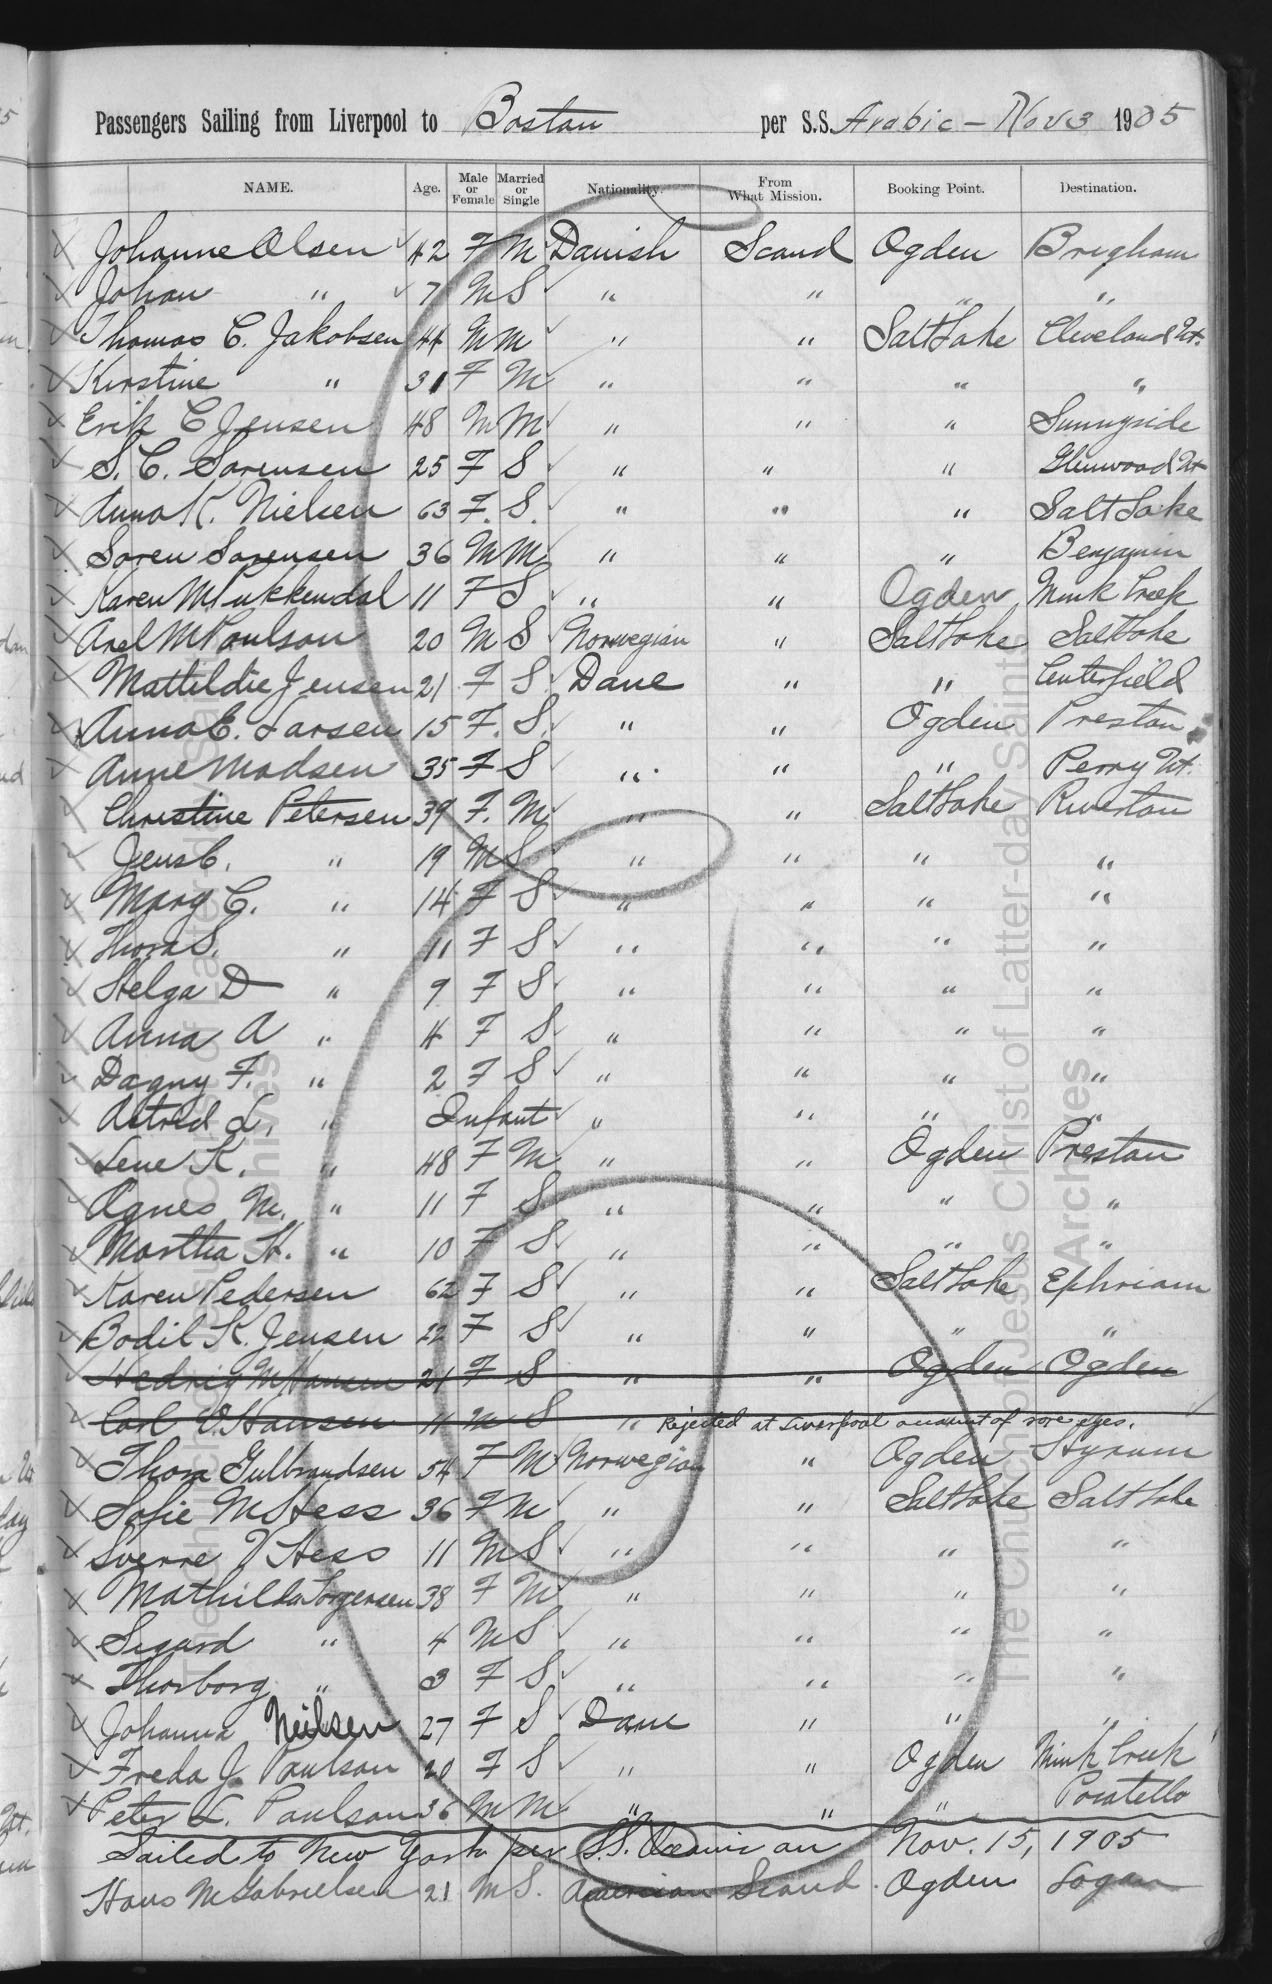 Passengers Sailing from Liverpool to Boston per S.S. Arabic - Nov 3 1905
NAME. Age. Male or Female Married or Single Nationality. From What Mission. Booking Point. Destination.
Johanne Olsen 42 F M Danish Scand Ogden Brigham
Johan " 7 M S " " " "
Thomas C. Jakobsen 44 M M " " Salt Lake Cleveland Ut.
Kirstine " 31 F M " " " "
Erik C Jensen 48 M M " " " Sunnyside
S. C. Sorensen 25 F S " " " Glenwood Ut
Anna K. Nielsen 63 F. S. " " " Salt Lake
Soren Sorensen 36 M M " " " Benjamin
Karen M 11 F S " " Ogden Mink Creek
Axel M Poulson 20 M S Norwegian " Salt Lake Salt Lake
Mattildie Jensen 21 F S Dane " " Centerfield
Anna E. Larsen 15 F. S. " " Ogden Preston
Anne Madsen 35 F S " " " Perry Ut.
Christine Petersen 39 F. M " " Salt Lake Riverton
Jens C. " 19 M S " " " "
Mary C. " 14 F S " " " "
Thora S. " 11 F S " " " "
Helga D " 9 F S " " " "
Anna A " 4 F S " " " "
Dagny F. " 2 F S " " " "
Astred L. " Infant " " " "
Lene K. " 48 F M " " Ogden Preston
Agnes M. " 11 F S " " " "
Martha H. " 10 F S " " " "
Karen Pedersen 62 F S " " Salt Lake Ephriam
Bodil K. Jensen 22 F S " " " "
Hedvig M Hansen 21 F S " " Ogden Ogden
Carl V. Hansen 11 M S " Rejected at Liverpool account of sore eyes.
Thora Gulbrandsen 54 F M Norwegian " Ogden Hyrum
Sofie M Hess 36 F M " " Salt Lake Salt Lake
Sverre V Hess 11 M S " " " "
Mathilda Jorgensen 38 F M " " " "
Sigurd " 4 M S " " " "
Thorborg " 3 F S " " " "
Johanna Neilsen 27 F S Dane " " "
Freda J. Paulson 20 F S " " Ogden Mink Creek
Peter L. Paulson 36 M M " " " Pocatello
Sailed to New York per S.S. Oceanic on Nov. 15, 1905
Hans M Gabrielsen 21 M S. American Scand. Ogden Logan
The Church of Jesus Christ of Latter-day Saints
Archives